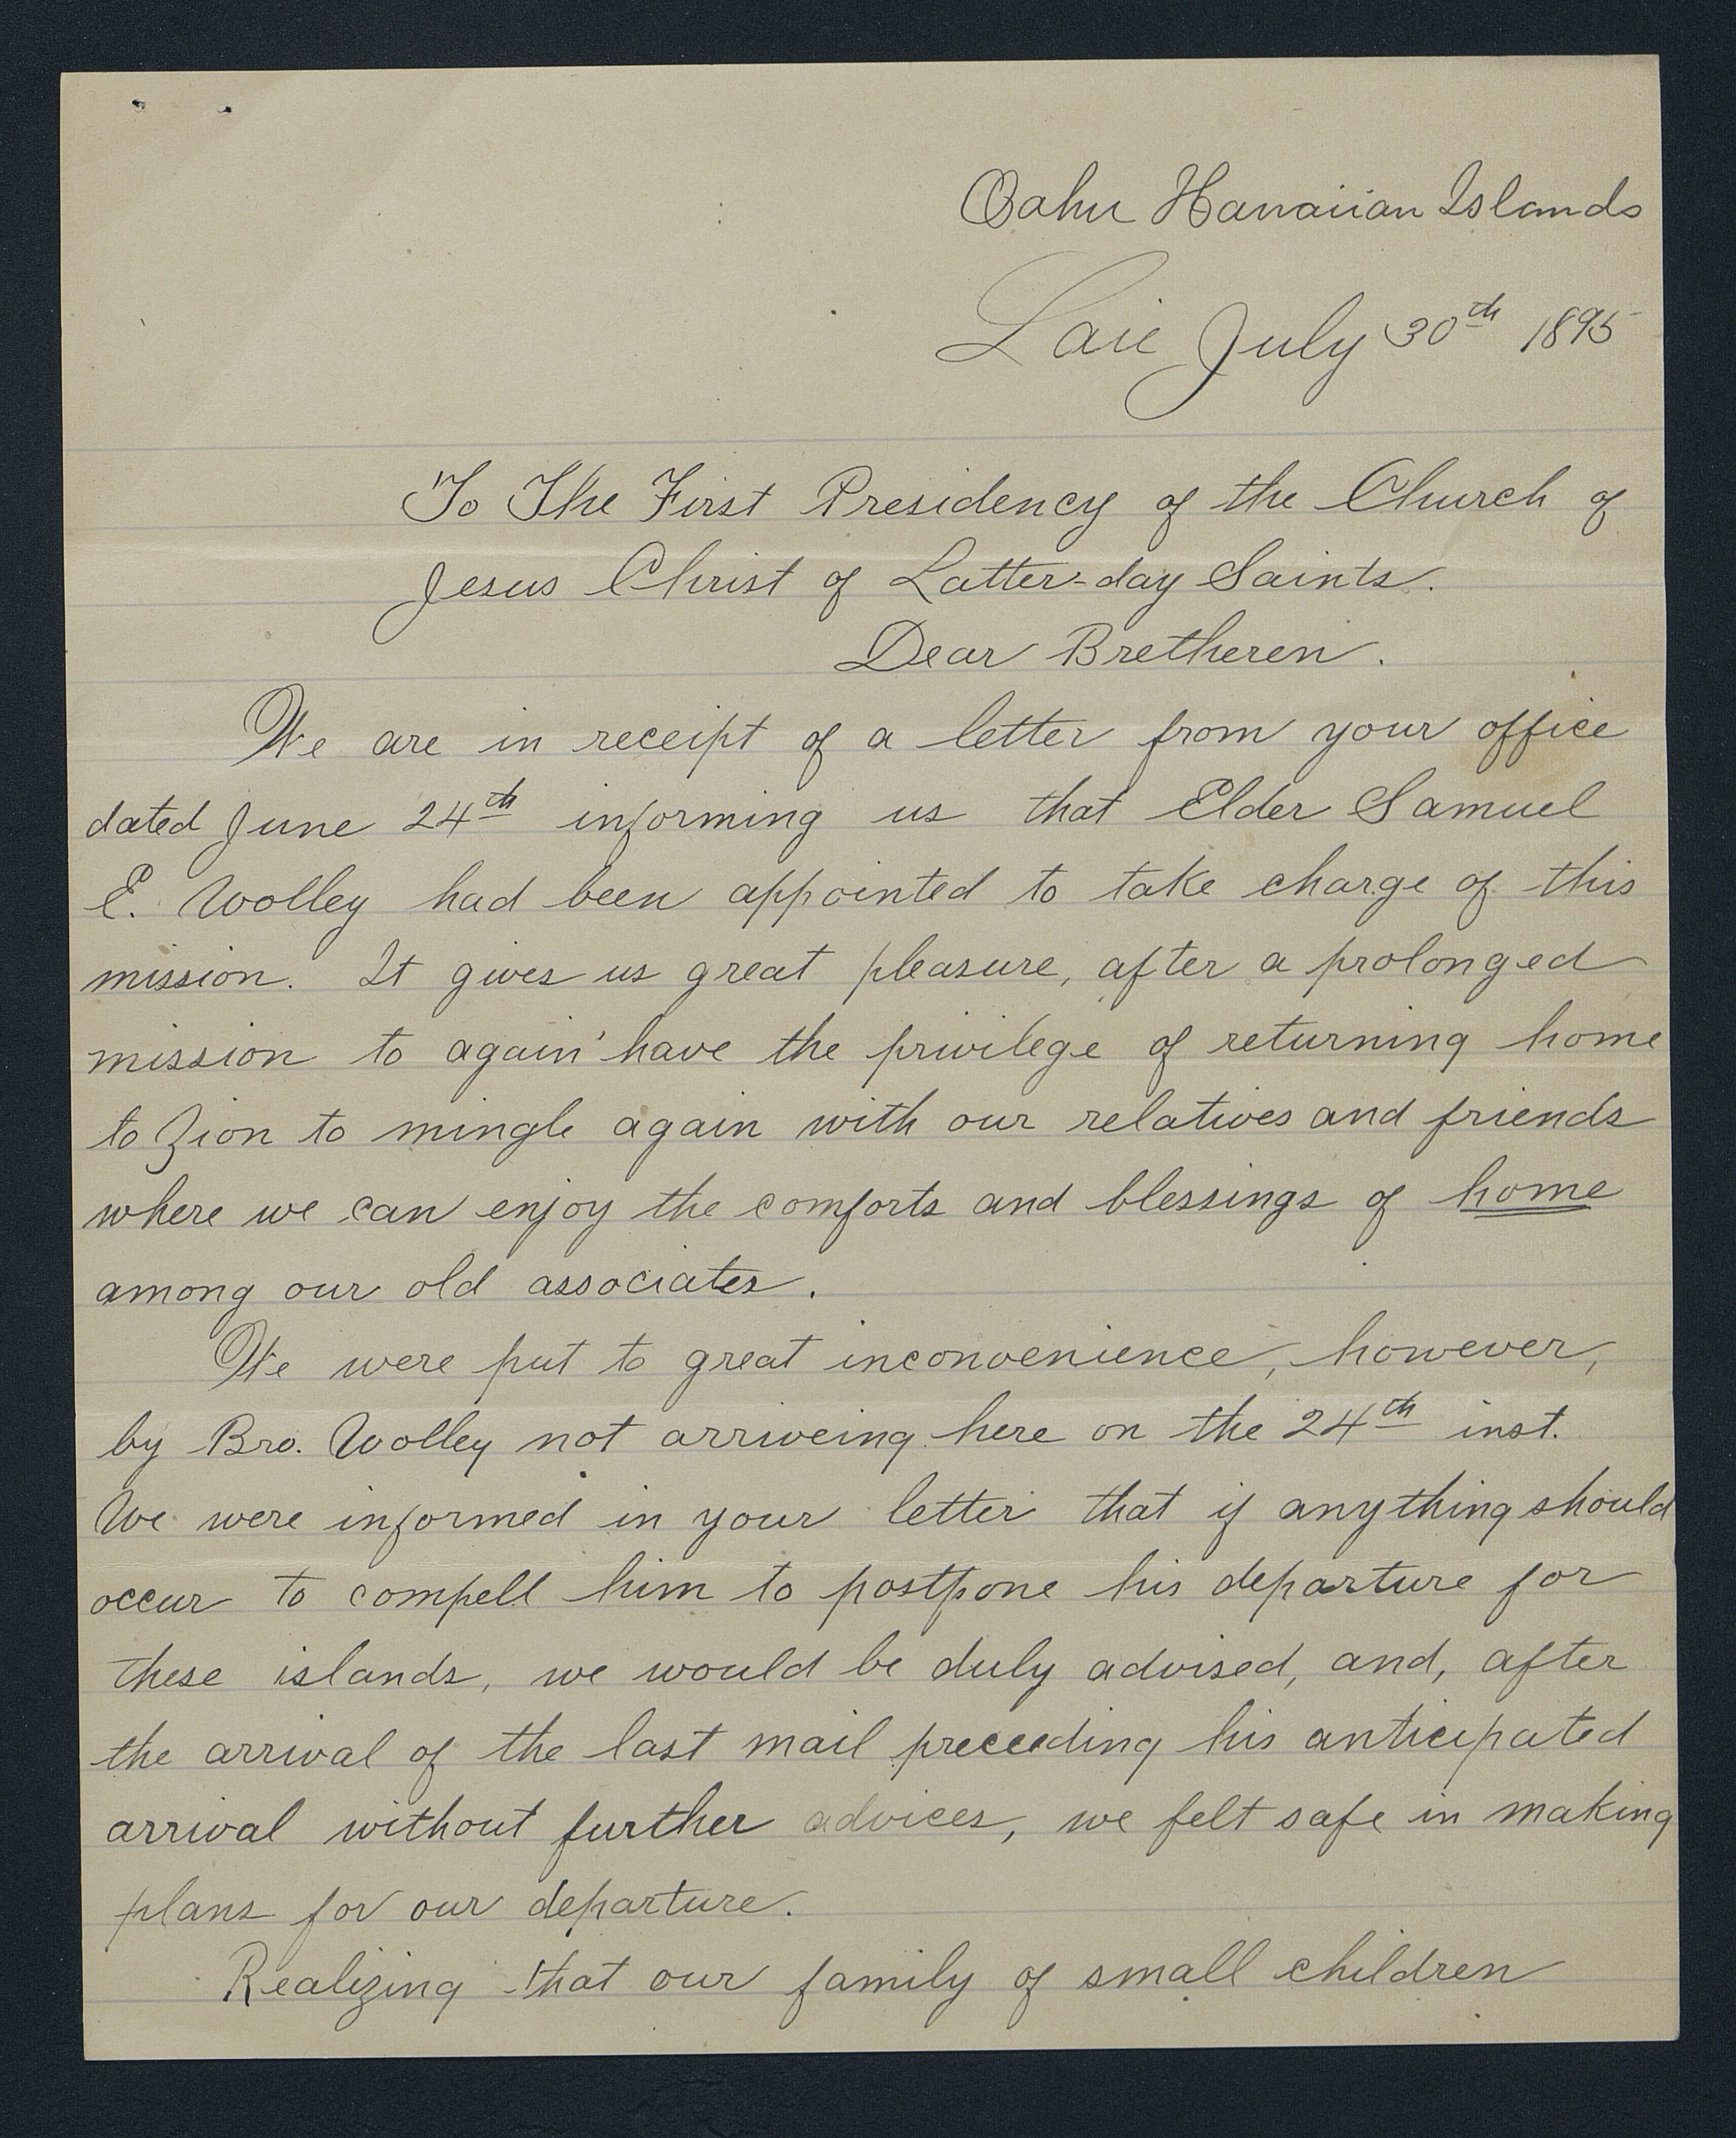 Oahu Hawaiian Islands
Laie July 30th 1895
To The First Presidency of the Church of
Jesus Christ of Latter-day Saints.
Dear Bretheren.
We are in receipt of a letter from your office
dated June 24th informing us that Elder Samuel
E. Wolley had been appointed to take charge of this
mission. It gives us great pleasure, after a prolonged
mission to again have the privilege of returning home
to Zion to mingle again with our relatives and friends
where we can enjoy the comforts and blessings of home
among our old associates.
We were put to great inconvenience, however,
by Bro. Wolley not arriveing here on the 24th inst.
We were informed in your letter that if anything should
occur to compell him to postpone his departure for
these islands, we would be duly advised, and, after
the arrival of the last mail preceeding his anticipated
arrival without further advices, we felt safe in making
plans for our departure.
Realizing that our family of small children